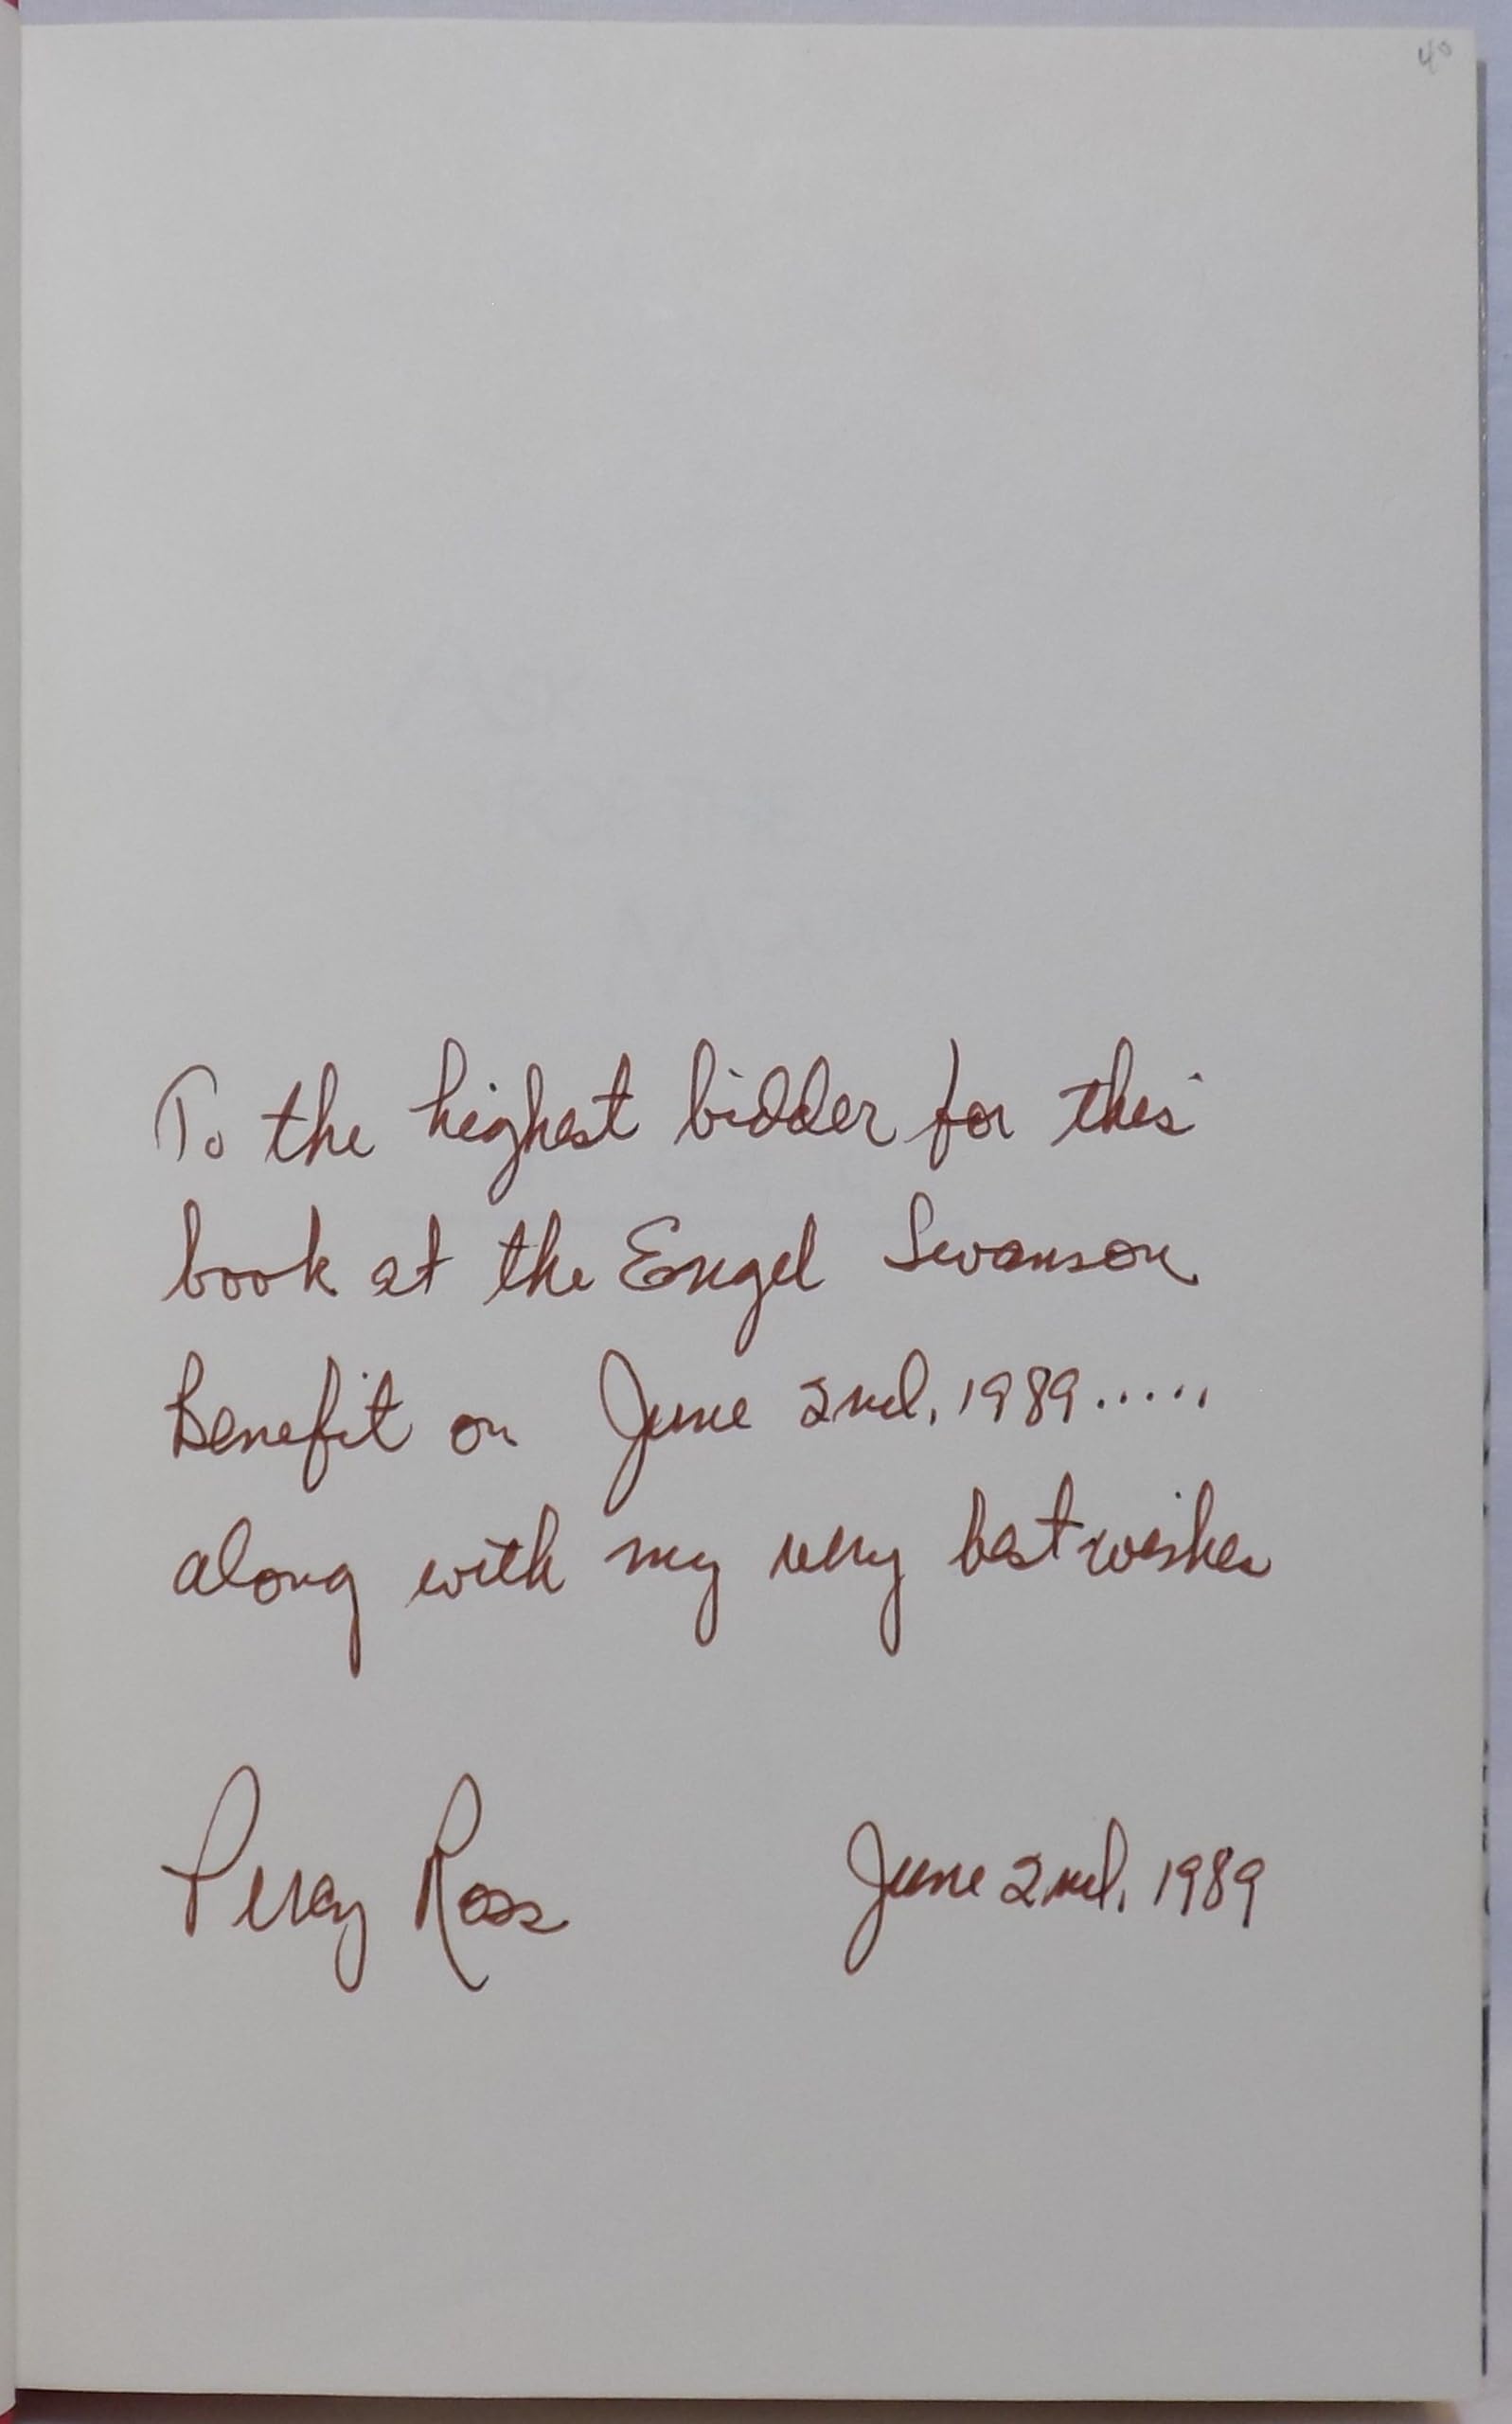 40
To the highest bidder for this
book at the Engel Swanson
Benefit on June 2nd, 1989.....
along with my very best wishes
Percy Ross June 2nd, 1989